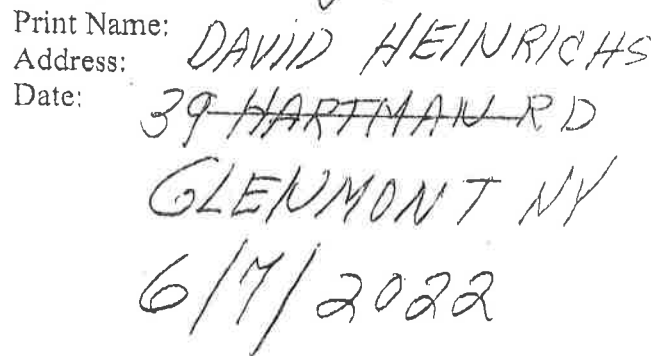 Print Name: DAVID HEINRICHS
Address: 39 HARTMAN RD
Date: GLENMONT NY
6/7/2022